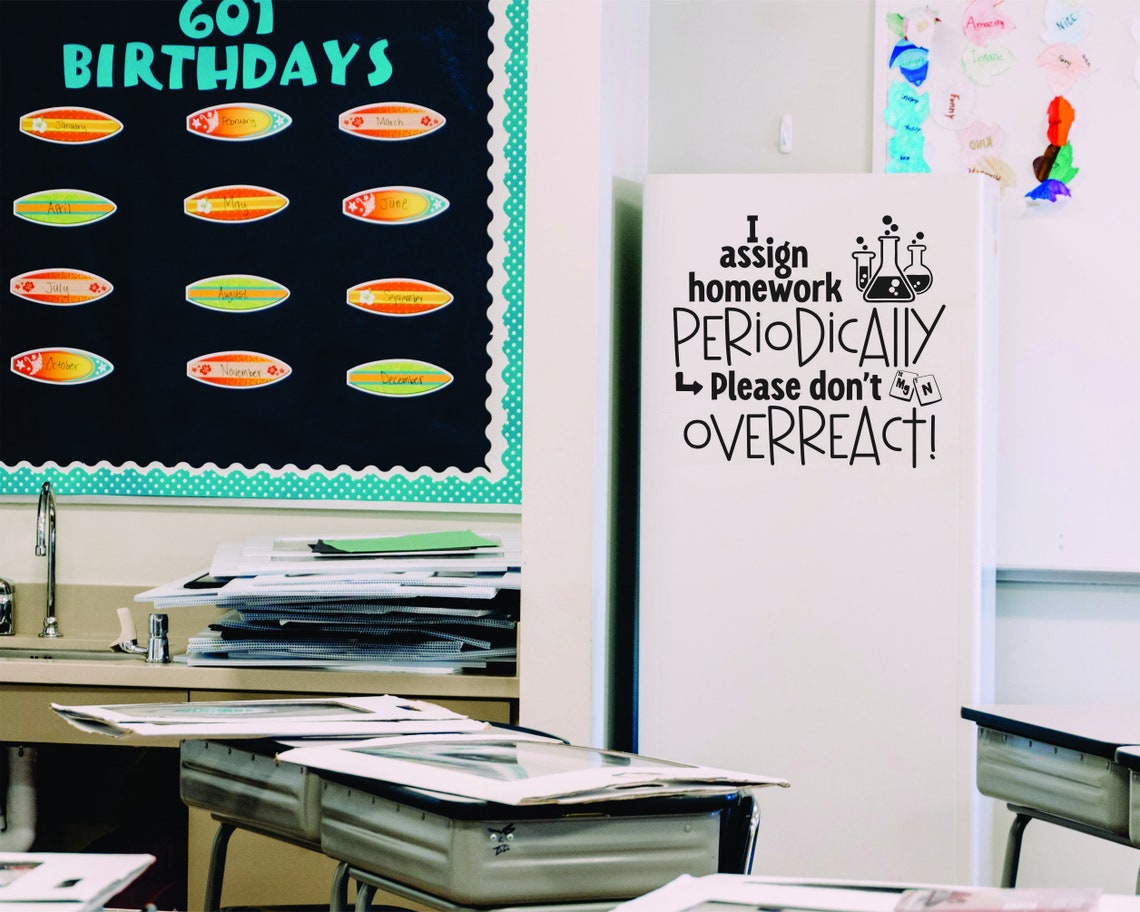 601
BIRTHDAYS
January
February
March
April
May
June
July
August
September
October
November
December
I
assign
homework
PERiODiCAllY
Please don't
Mg N
OVERREACT!
Amazing
NICE
Funny
KIND